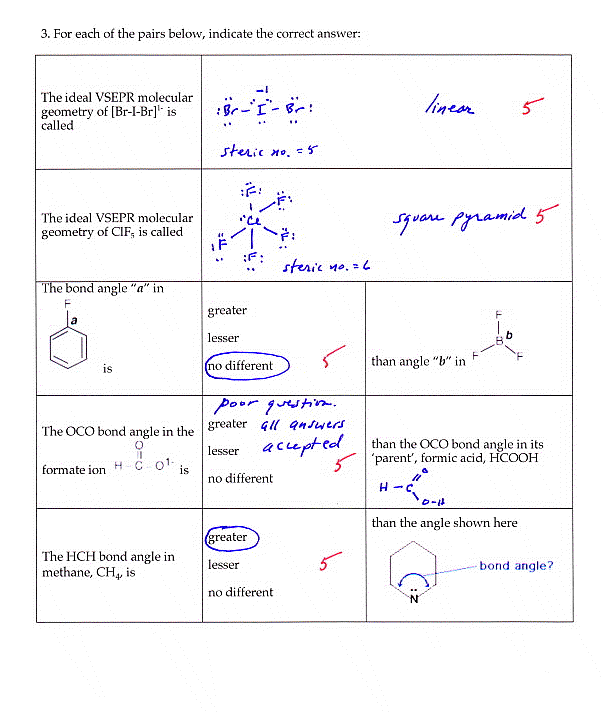 3. For each of the pairs below, indicate the correct answer:
The ideal VSEPR molecular
geometry of [Br-I-Br]¹⁻ is
called
−1
:Br–I–Br:
steric no. = 5
linear
5
The ideal VSEPR molecular
geometry of ClF₅ is called
:F:
F:
Cl
:F
F:
:F:
steric no. = 6
square pyramid
5
The bond angle "a" in
F
a
is
greater
lesser
no different
5
than angle "b" in
F
B
b
F
F
The OCO bond angle in the
formate ion
O
H–C–O¹⁻
is
poor question.
greater
all answers
lesser
accepted
5
no different
than the OCO bond angle in its
'parent', formic acid, HCOOH
O
H–C
O–H
The HCH bond angle in
methane, CH₄, is
greater
lesser
no different
5
than the angle shown here
bond angle?
N